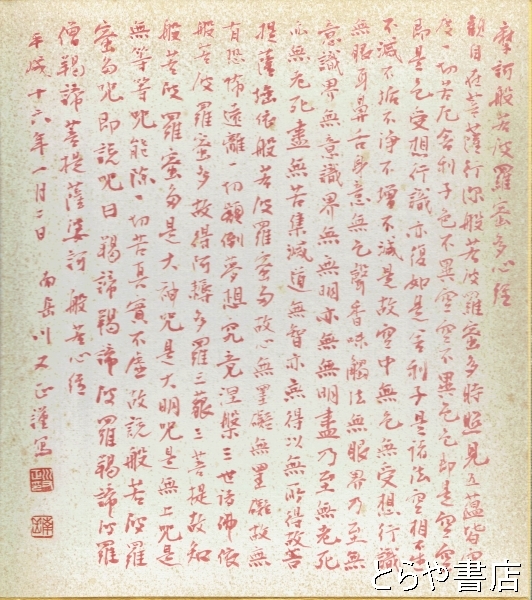 摩訶般若波羅蜜多心経
観自在菩薩行深般若波羅蜜多時照見五蘊皆空
度一切苦厄舎利子色不異空空不異色色即是空空
即是色受想行識亦復如是舎利子是諸法空相不生
不滅不垢不浄不増不減是故空中無色無受想行識
無眼耳鼻舌身意無色聲香味觸法無眼界乃至無
意識界無意識界無無明亦無無明盡乃至無老死
亦無老死盡無苦集滅道無智亦無得以無所得故菩
提薩埵依般若波羅蜜多故心無罣礙無罣礙故無
有恐怖遠離一切顛倒夢想究竟涅槃三世諸佛依
般若波羅蜜多故得阿耨多羅三藐三菩提故知
般若波羅蜜多是大神呪是大明呪是無上呪是
無等等呪能除一切苦真實不虚故説般若波羅
蜜多呪即説呪曰 羯諦羯諦波羅羯諦波羅
僧羯諦菩提薩婆訶 般若心経
平成十六年一月二日 川又正謹写
とらや書店